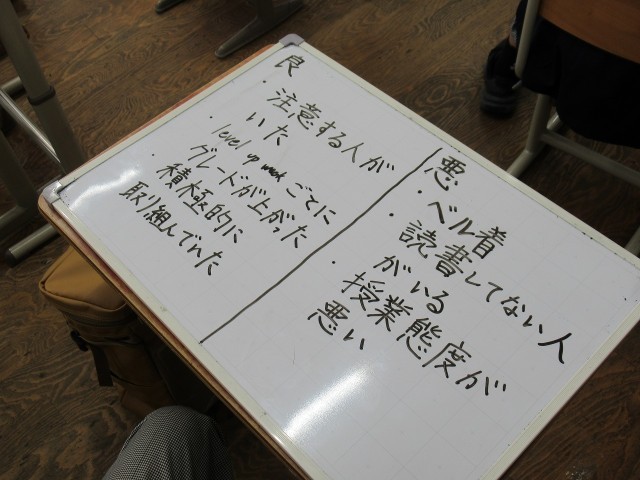 良
・注意する人が
いた
・level up week ごとに
グレードが上がった
・積極的に
取り組んでいた
悪
・ベル着
・読書してない人
がいる
・授業態度が
悪い